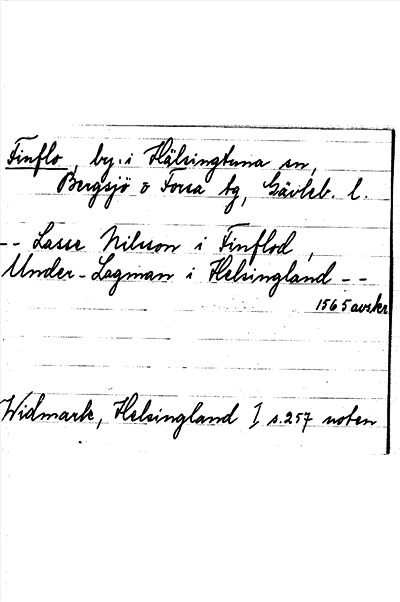 Finflo, by i Hälsingtuna sn,
Bergsjö o Forsa tg, Gävleb. l.
-- Lasse Nilsson i Finflod,
Under-Lagman i Helsingland --
1565 avskr
Widmark, Helsingland I s. 257 noten